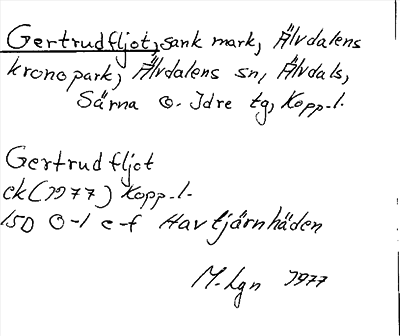 Gertrudfljot, sank mark, Älvdalens
kronopark, Älvdalens sn, Älvdals,
Särna o. Idre tg, Kopp.l.
Gertrudfljot
ek (1977) Kopp.l.
15D 0-1 e-f Havtjärnhäden
M. Lgn 1977